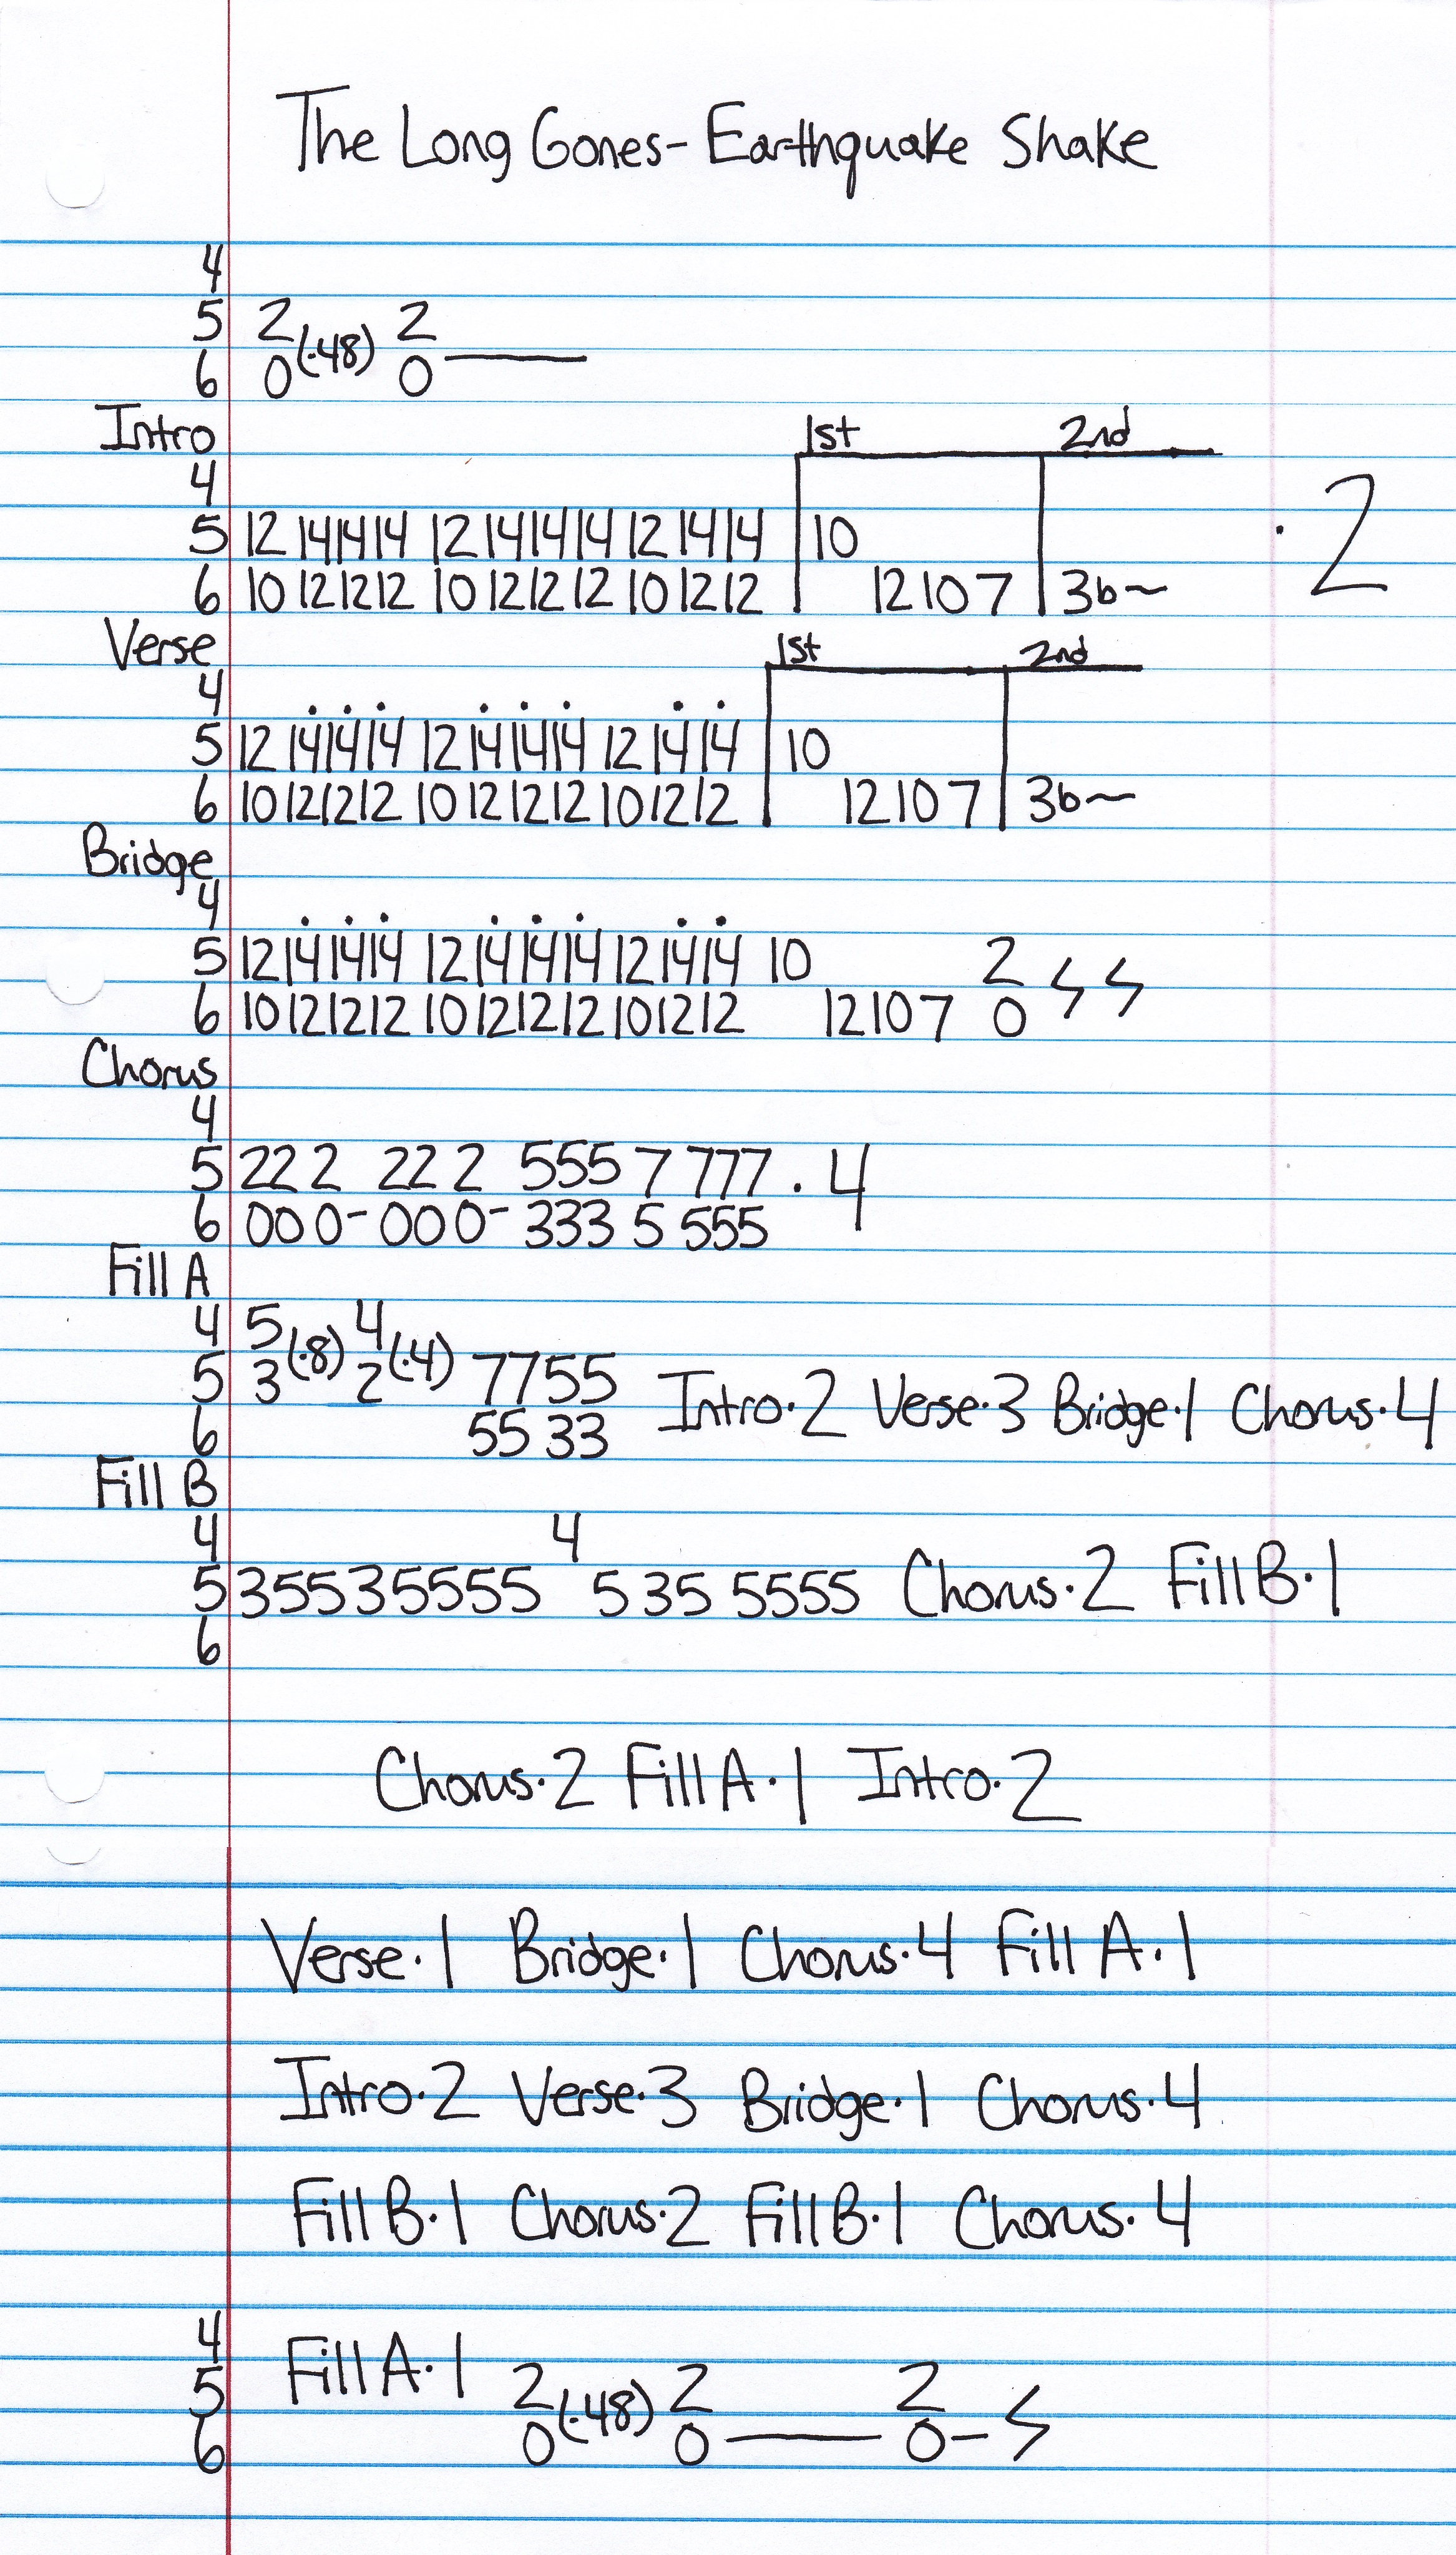 The Long Gones- Earthquake Shake
4
5 2 (·48) 2
6 0 0
Intro 1st 2nd
4
5 12 14 14 14 12 14 14 14 12 14 14 10 ·2
6 10 12 12 12 10 12 12 12 10 12 12 12 10 7 3b~
Verse 1st 2nd
4
5 12 14 14 14 12 14 14 14 12 14 14 10
6 10 12 12 12 10 12 12 12 10 12 12 12 10 7 3b~
Bridge
4
5 12 14 14 14 12 14 14 14 12 14 14 10 2
6 10 12 12 12 10 12 12 12 10 12 12 12 10 7 0
Chorus
4
5 22 2 22 2 555 7 777 · 4
6 00 0- 00 0- 333 5 555
Fill A
4 5 (·8) 4 (·4)
5 3 2 7755 Intro·2 Verse·3 Bridge·1 Chorus·4
6 55 33
Fill B
4 4
5 355535555 5 35 5555 Chorus·2 Fill B·1
6
Chorus·2 Fill A·1 Intro·2
Verse·1 Bridge·1 Chorus·4 Fill A·1
Intro·2 Verse·3 Bridge·1 Chorus·4
Fill B·1 Chorus·2 Fill B·1 Chorus·4
4 Fill A·1
5 2 (·48) 2 2
6 0 0 0-